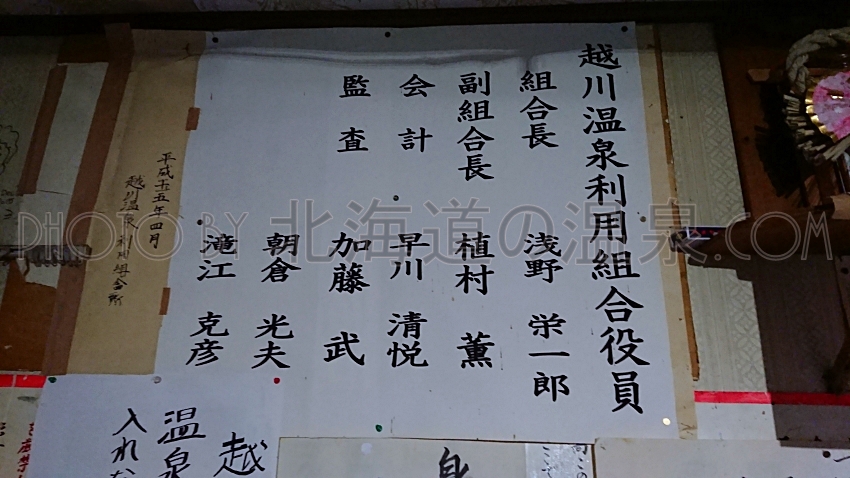 越川温泉利用組合役員
組合長 浅野 栄一郎
副組合長 植村 薫
会計 早川 清悦
監査 加藤 武
朝倉 光夫
滝江 克彦
平成五年四月
越川温泉利用組合
越
温泉
入れな
PHOTO BY 北海道の温泉.COM